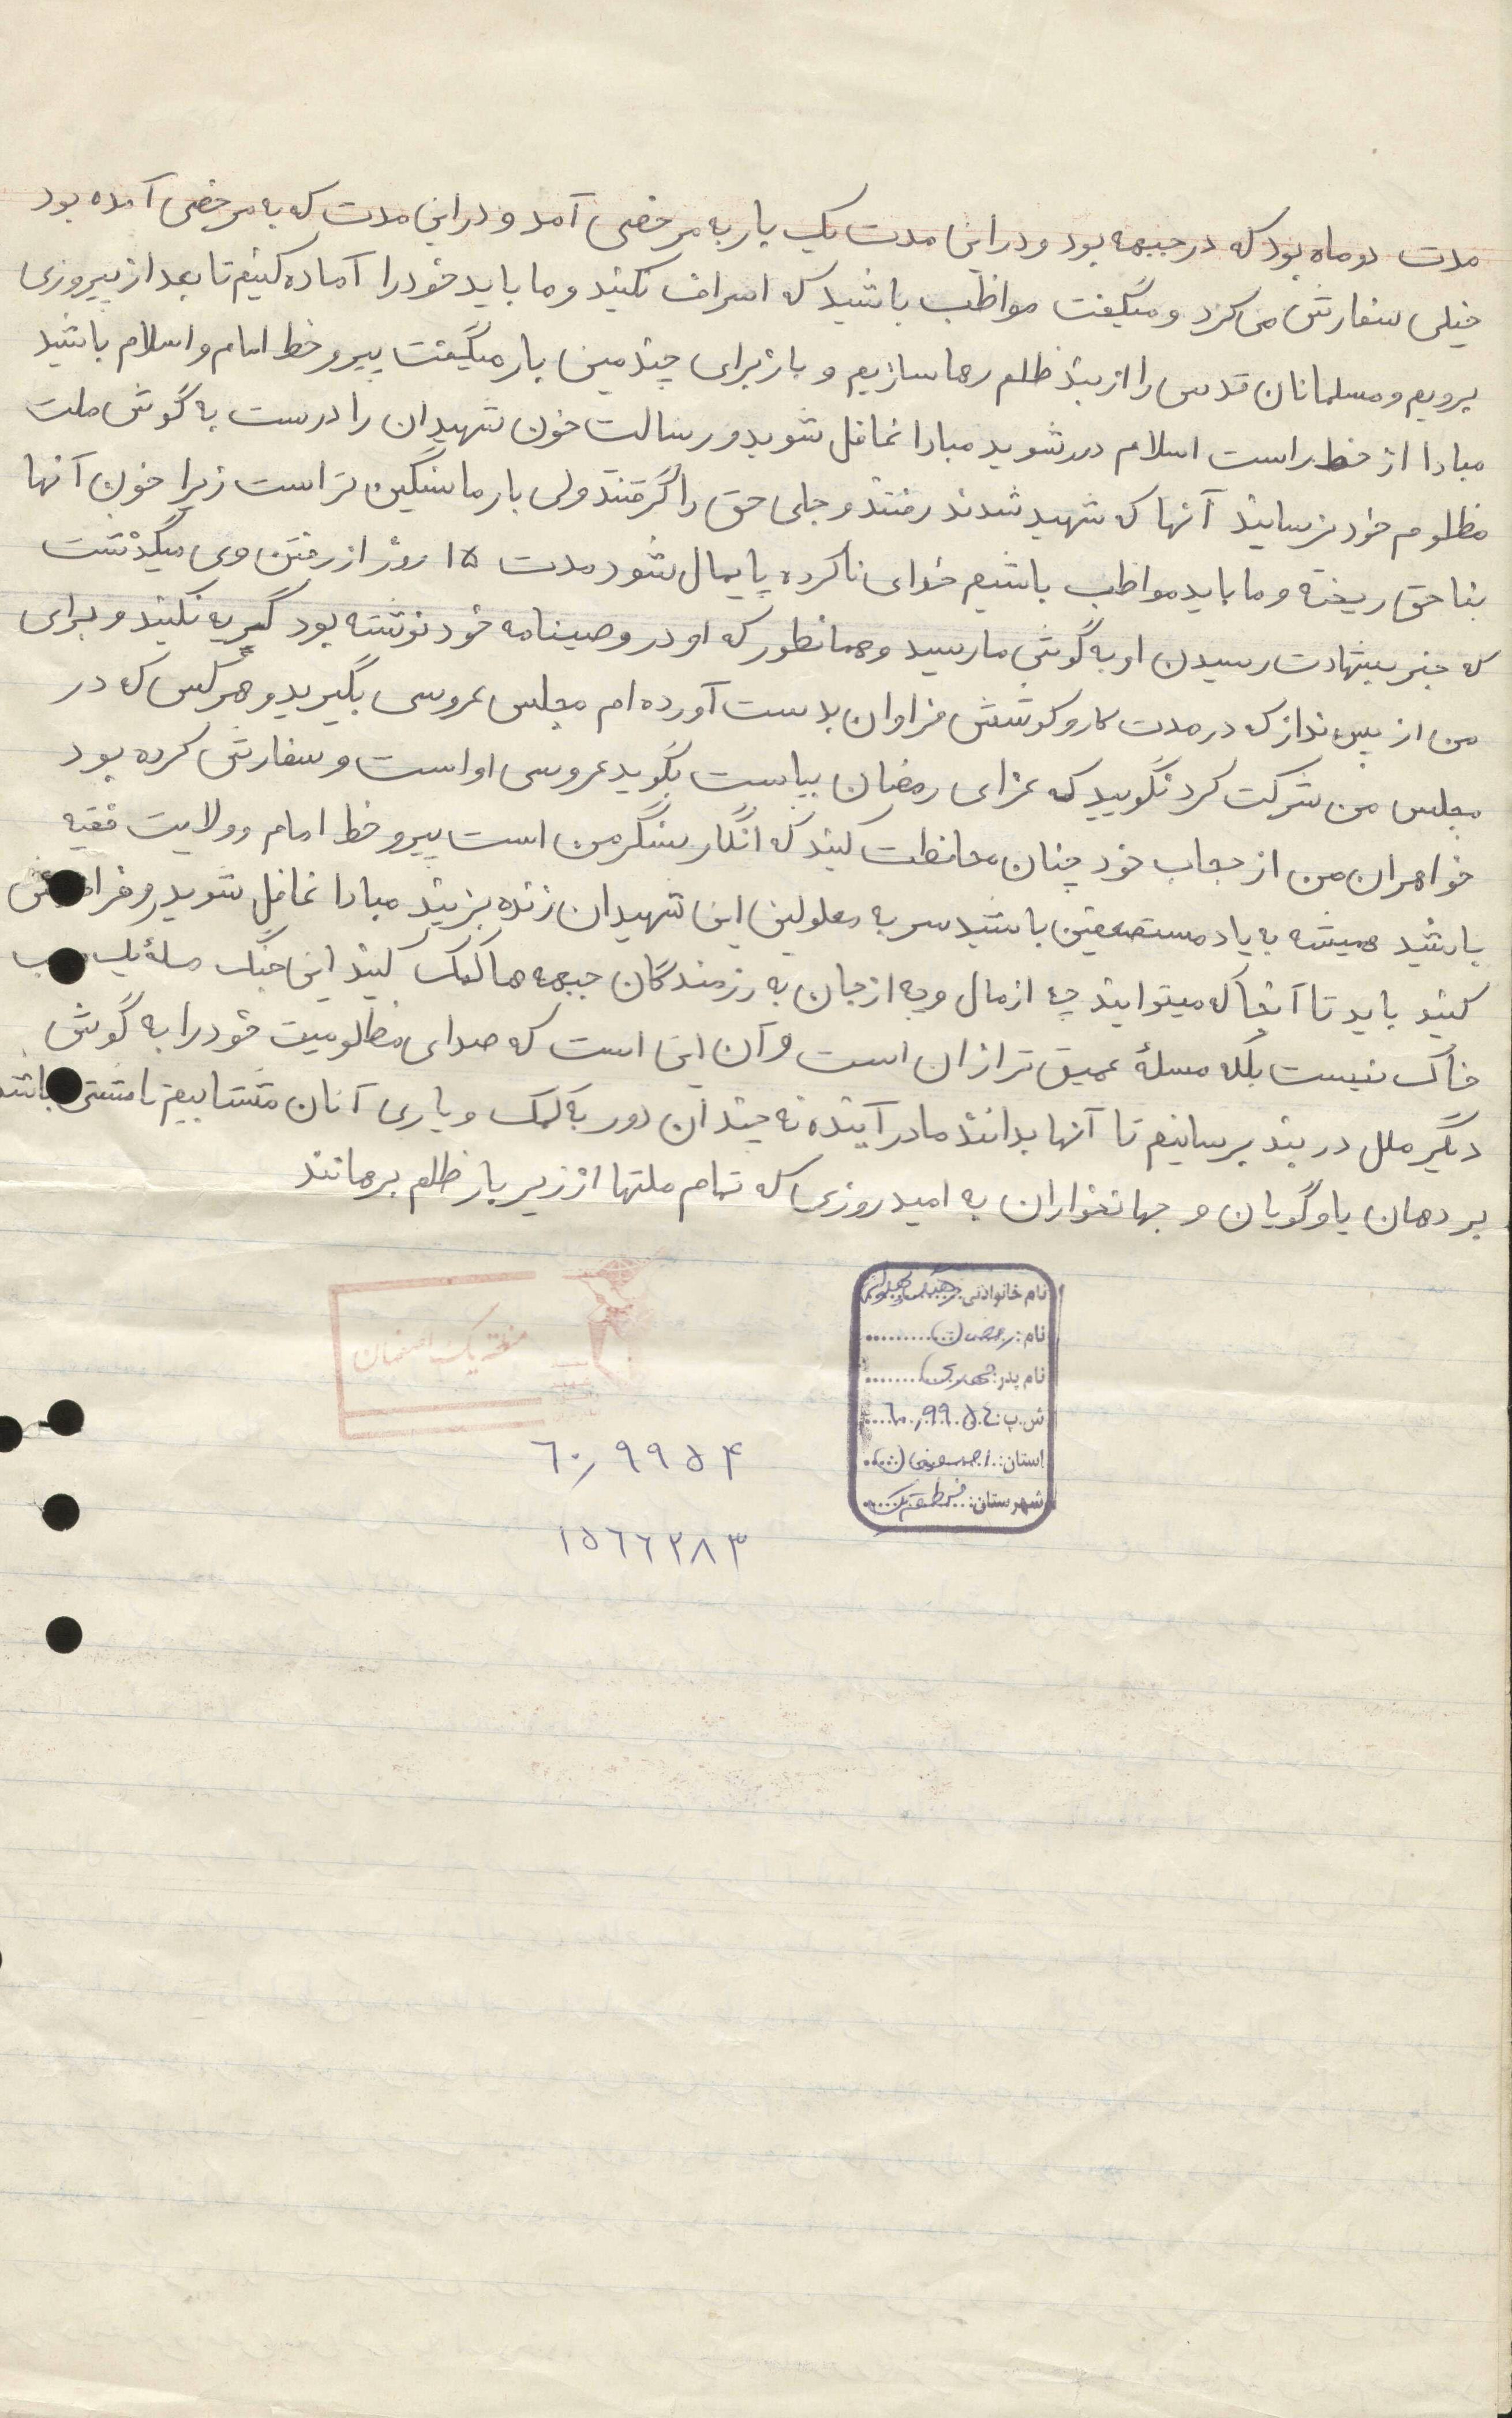 مدت دو ماه بود که در جبهه بود و در این مدت یک بار به مرخصی آمد و در این مدت که به مرخصی آمده بود
خیلی سفارش می کرد و میگفت مواظب باشید که اسراف نکنید و ما باید خود را آماده کنیم تا بعد از پیروزی
برویم و مسلمانان قدس را از بند ظلم رها سازیم و باز برای چندمین بار میگفت پیرو خط امام و اسلام باشید
مبادا از خط راست اسلام دور شوید مبادا غافل شوید و رسالت خون شهیدان را درست به گوش ملت
مظلوم خود نرسانید آنها که شهید شدند رفتند و جلی حق را گرفتند ولی بار ما سنگین تر است زیرا خون آنها
بناحق ریخته و ما باید مواظب باشیم خدای ناکرده پایمال نشود مدت ۱۵ روز از رفتن وی میگذشت
که خبر بشهادت رسیدن او به گوش ما رسید و همانطور که او در وصیتنامه خود نوشته بود گریه نکنید و برای
من از پس نداز که در مدت کار و کوشش فراوان بدست آورده ام مجلس عروسی بگیرید و هر کس که در
مجلس من شرکت کرد نگویید که عزای رمضان بیاست بگوید عروسی او است و سفارش کرده بود
خواهران من از حجاب خود چنان محافظت کنید که انگار سنگر من است پیرو خط امام و ولایت فقیه
باشید همیشه به یاد مستضعفین باشید سر به معلولین این شهیدان زنده بزنید مبادا غافل شوید و
کنید باید تا آنجا که میتوانید چه از مال و چه از جان به رزمندگان جبهه ها کمک کنید این جنگ مسلهٔ یک
خاک نیست بلکه مسلهٔ عمیق تر از ان است و آن این است که صدای مظلومیت خود را به گوش
دیگر ملل در بند برسانیم تا آنها بدانند ما در آینده نه چندان دور به کمک و یاری آنان مشتابیم تا مشتی باشد
بر دهان یاوگویان و جهانخواران به امید روزی که تمام ملتها از زیر بار ظلم برهانند
نام خانوادگی:
نام: رمضان
نام پدر: مهدی
ش.پ: ۶۰٫۹۹۵۴
استان: اصفهان
شهرستان: منطقه یک
منطقه یک اصفهان
۶۰٫۹۹۵۴
۱۵۶۶۲۸۳